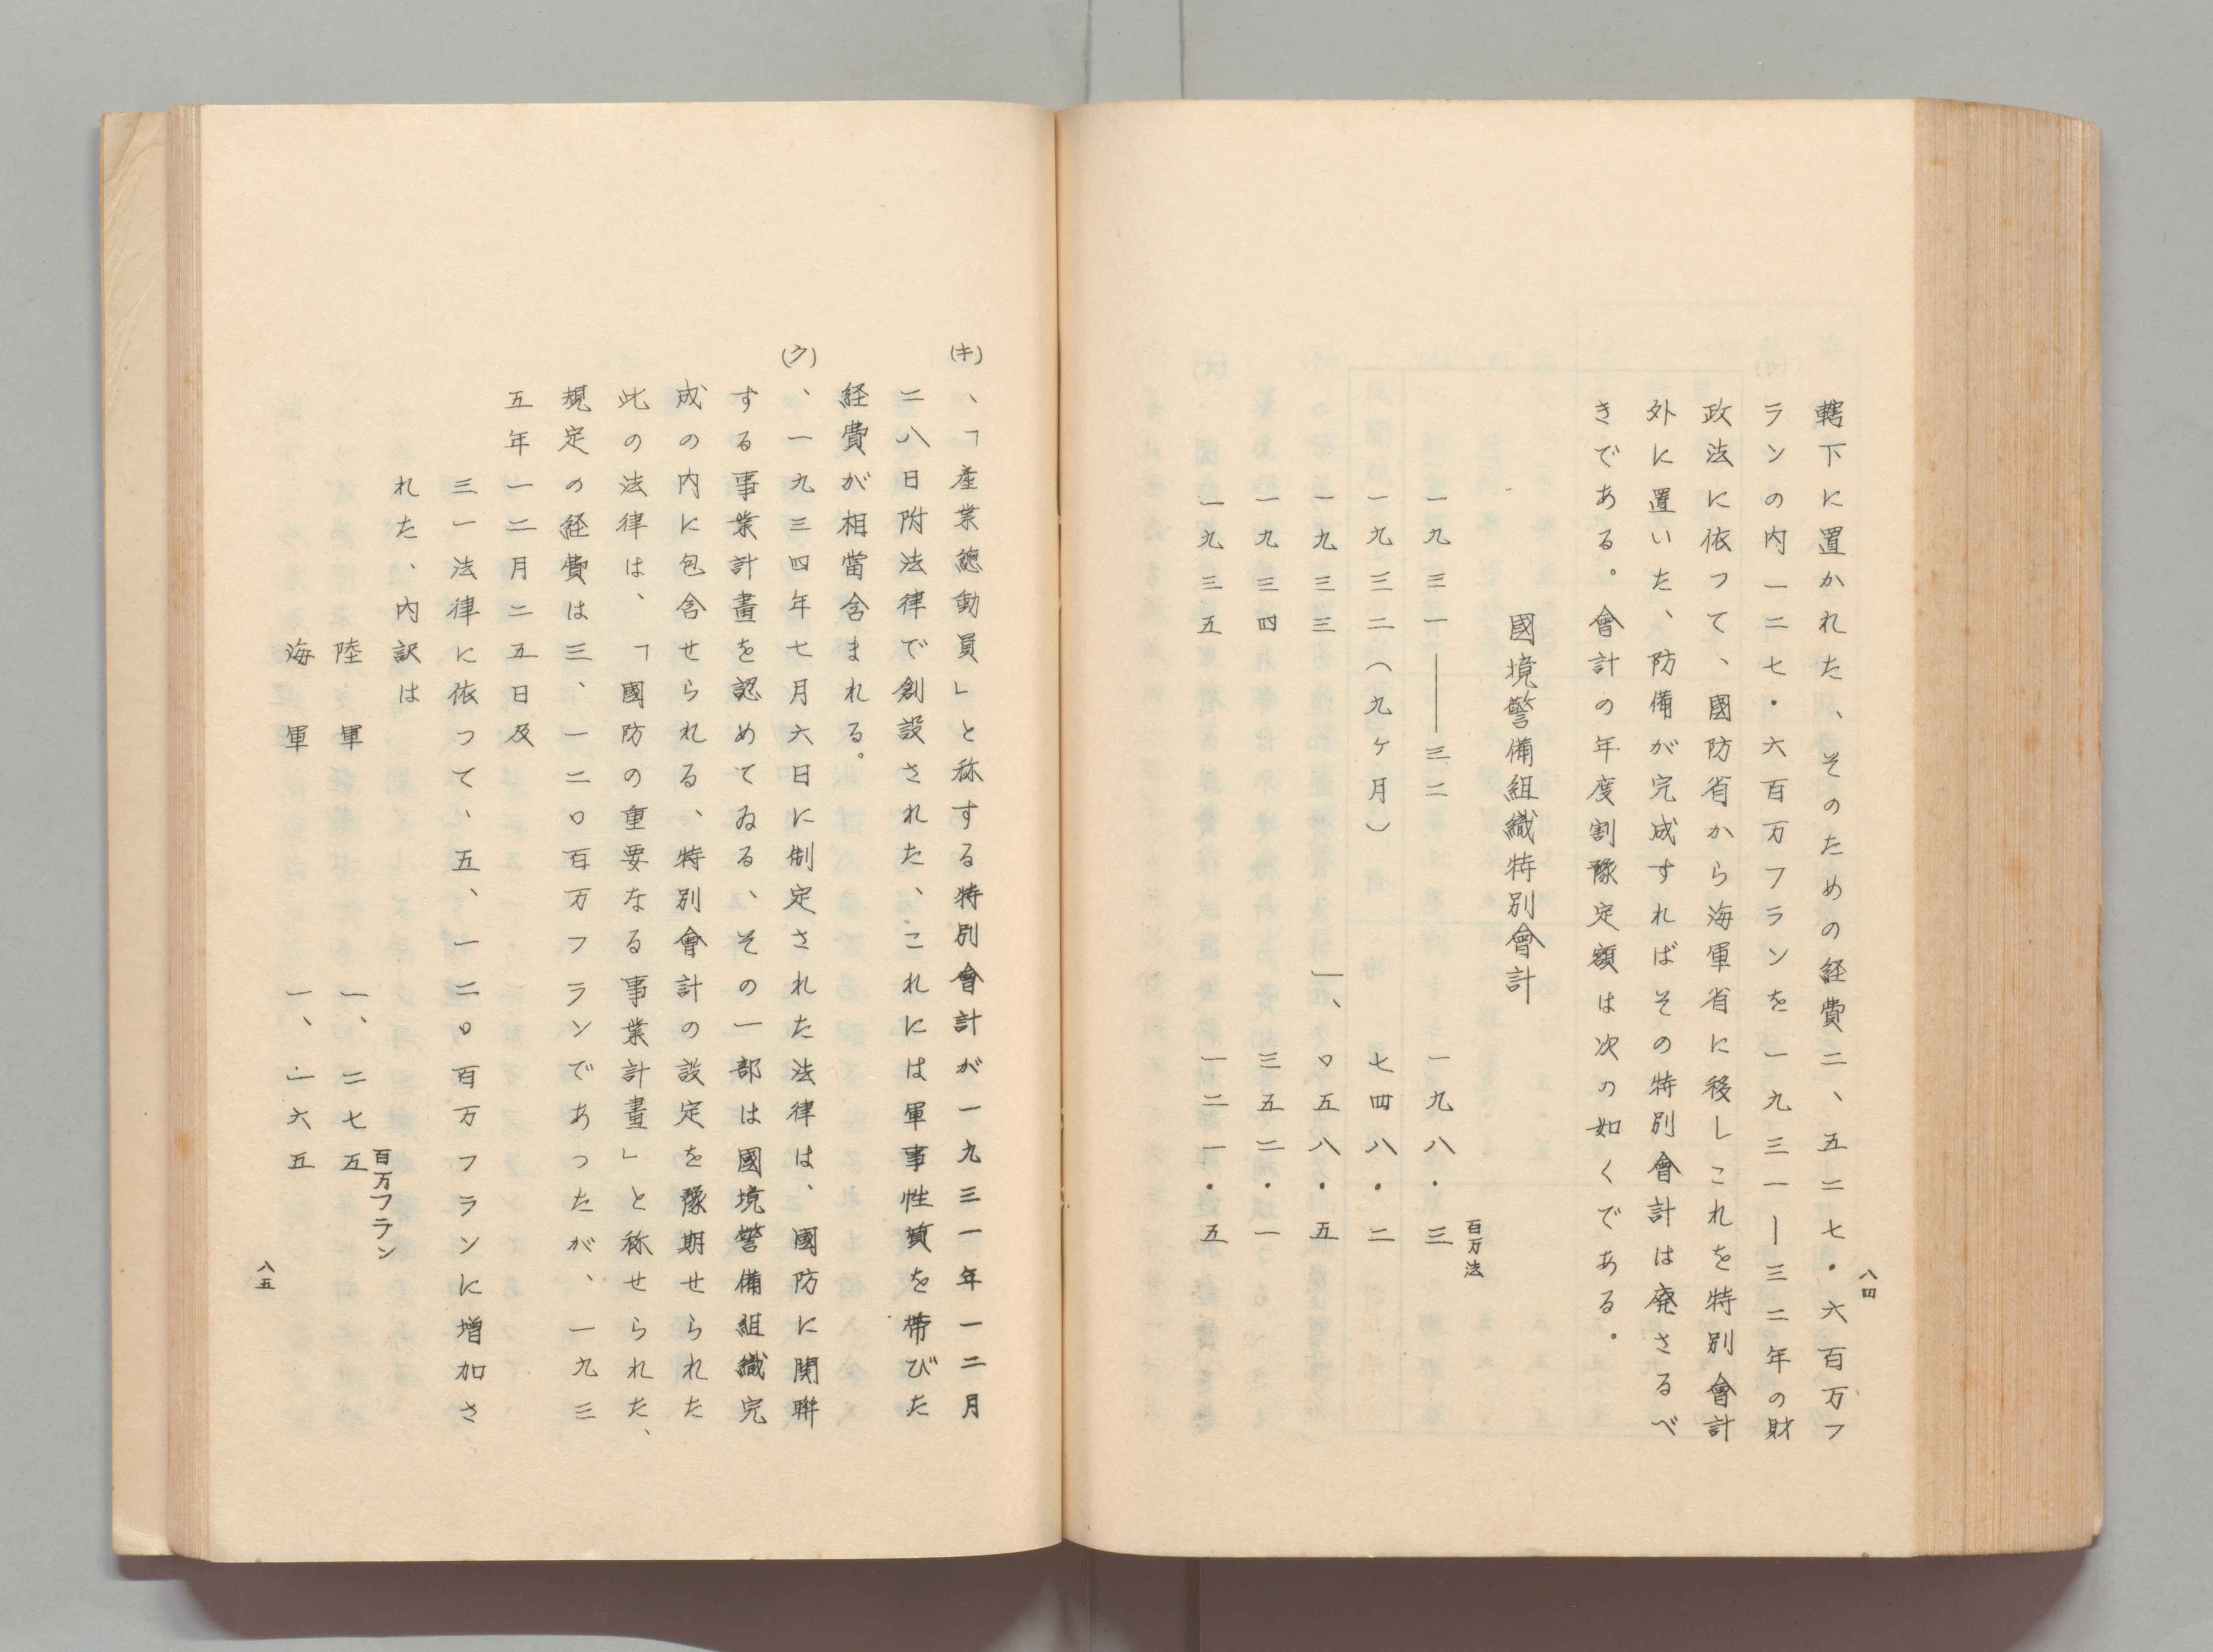 八四
轄下に置かれた、そのための経費二、五二七・六百万フ
ランの内一二七・六百万フランを一九三一―三二年の財
政法に依つて、國防省から海軍省に移しこれを特別會計
外に置いた、防備が完成すればその特別會計は廃さるべ
きである。會計の年度割豫定額は次の如くである。
國境警備組織特別會計
百万法
一九三一――三二 一九八・三
一九三二(九ヶ月) 七四八・二
一九三三 一、〇五八・五
一九三四 三五二・一
一九三五 一二一・五
(キ)、「産業總動員」と称する特別會計が一九三一年一二月
二八日附法律で創設された、これには軍事性質を帶びた
経費が相當含まれる。
(ク)、一九三四年七月六日に制定された法律は、國防に関聯
する事業計畫を認めてゐる、その一部は國境警備組織完
成の内に包含せられる、特別會計の設定を豫期せられた
此の法律は、「國防の重要なる事業計畫」と称せられた、
規定の経費は三、一二〇百万フランであつたが、一九三
五年一二月二五日及
三一法律に依つて、五、一二〇百万フランに増加さ
れた、内訳は
百万フラン
陸軍 一、二七五
海軍 一、一六五
八五